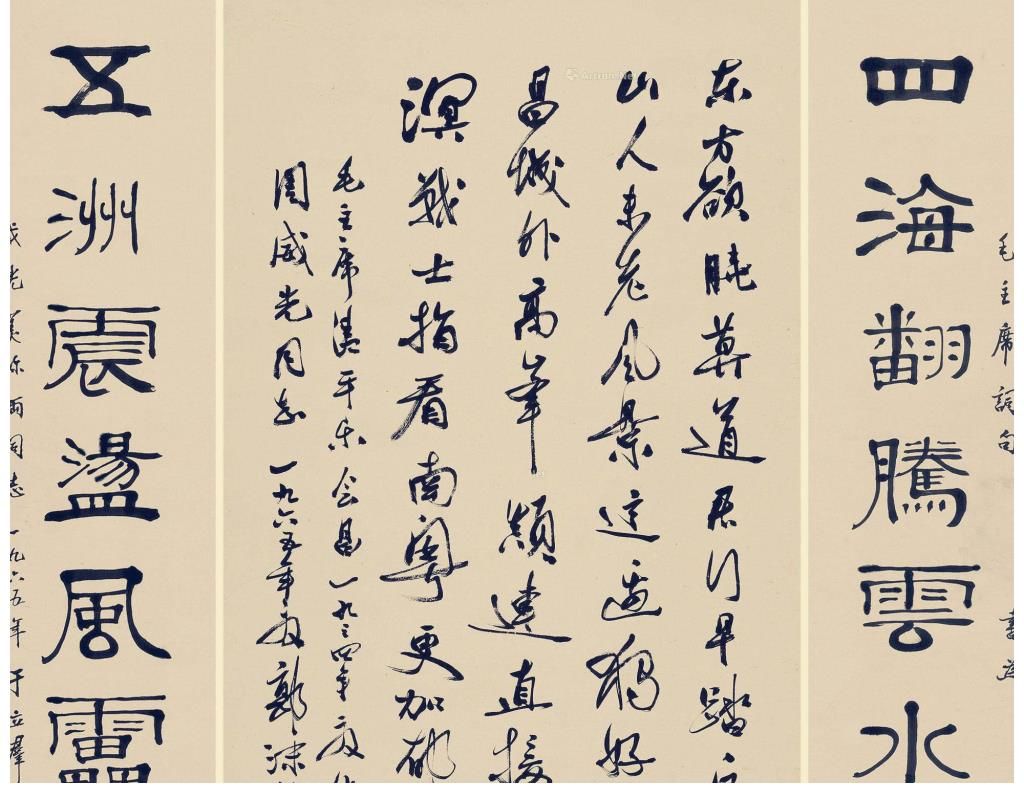 毛主席詞句 書為
四海翻騰雲水
东方欲晓莫道君行早踏
山人未老风景这边独好
昌城外高峯颠连直接
溟战士指看南粤更加郁
毛主席清平乐会昌一九三四年夏
周威先同志 一九六五年夏郭沫
五洲震盪風靁
两同志 一九六五年 于立羣